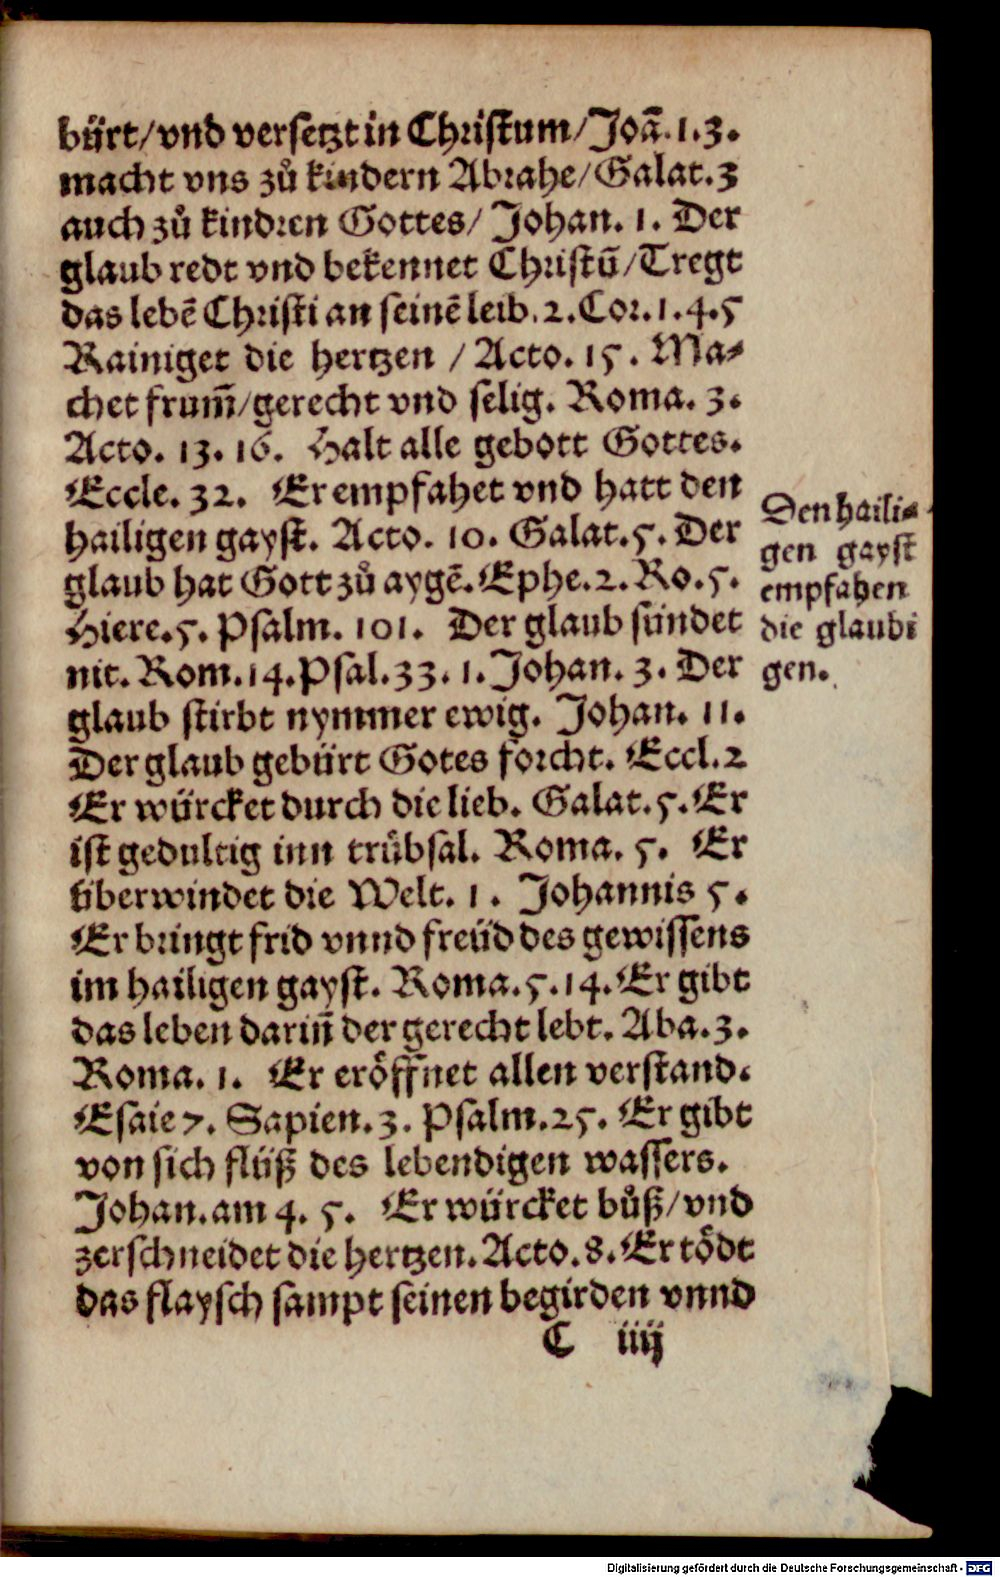 bürt/vnd versetzt in Christum/Joã.1.3.
macht vns zů kindern Abrahe/Galat.3
auch zů kindren Gottes/ Johan. 1. Der
glaub redt vnd bekennet Christũ/Tregt
das lebẽ Christi an seinẽ leib.2.Cor.1.4.5
Rainiget die hertzen /Acto. 15. Ma⸗
chet frum̃/gerecht vnd selig. Roma. 3.
Acto. 13. 16. Halt alle gebott Gottes.
Eccle. 32. Er empfahet vnd hatt den
hailigen gayst. Acto. 10. Galat.5. Der
glaub hat Gott zů aygẽ.Ephe.2.Ro.5.
Hiere.5. Psalm. 101. Der glaub sündet
nit. Rom.14.Psal.33.1.Johan. 3. Der
glaub stirbt nymmer ewig. Johan. 11.
Der glaub gebürt Gotes forcht. Eccl.2
Er würcket durch die lieb. Galat.5.Er
ist gedultig inn trübsal. Roma. 5. Er
überwindet die Welt. 1. Johannis 5.
Er bringt frid vnnd freüd des gewissens
im hailigen gayst. Roma.5.14.Er gibt
das leben darin̄ der gerecht lebt. Aba.3.
Roma. 1. Er eröffnet allen verstand.
Esaie 7. Sapien.3. Psalm.25. Er gibt
von sich flüß des lebendigen wassers.
Johan.am 4. 5. Er würcket bůß/vnd
zerschneidet die hertzen.Acto.8.Er tödt
das flaysch sampt seinen begirden vnnd
C iiij
Den haili⸗
gen gayst
empfahen
die glaubi
gen.
Digitalisierung gefördert durch die Deutsche Forschungsgemeinschaft - DFG